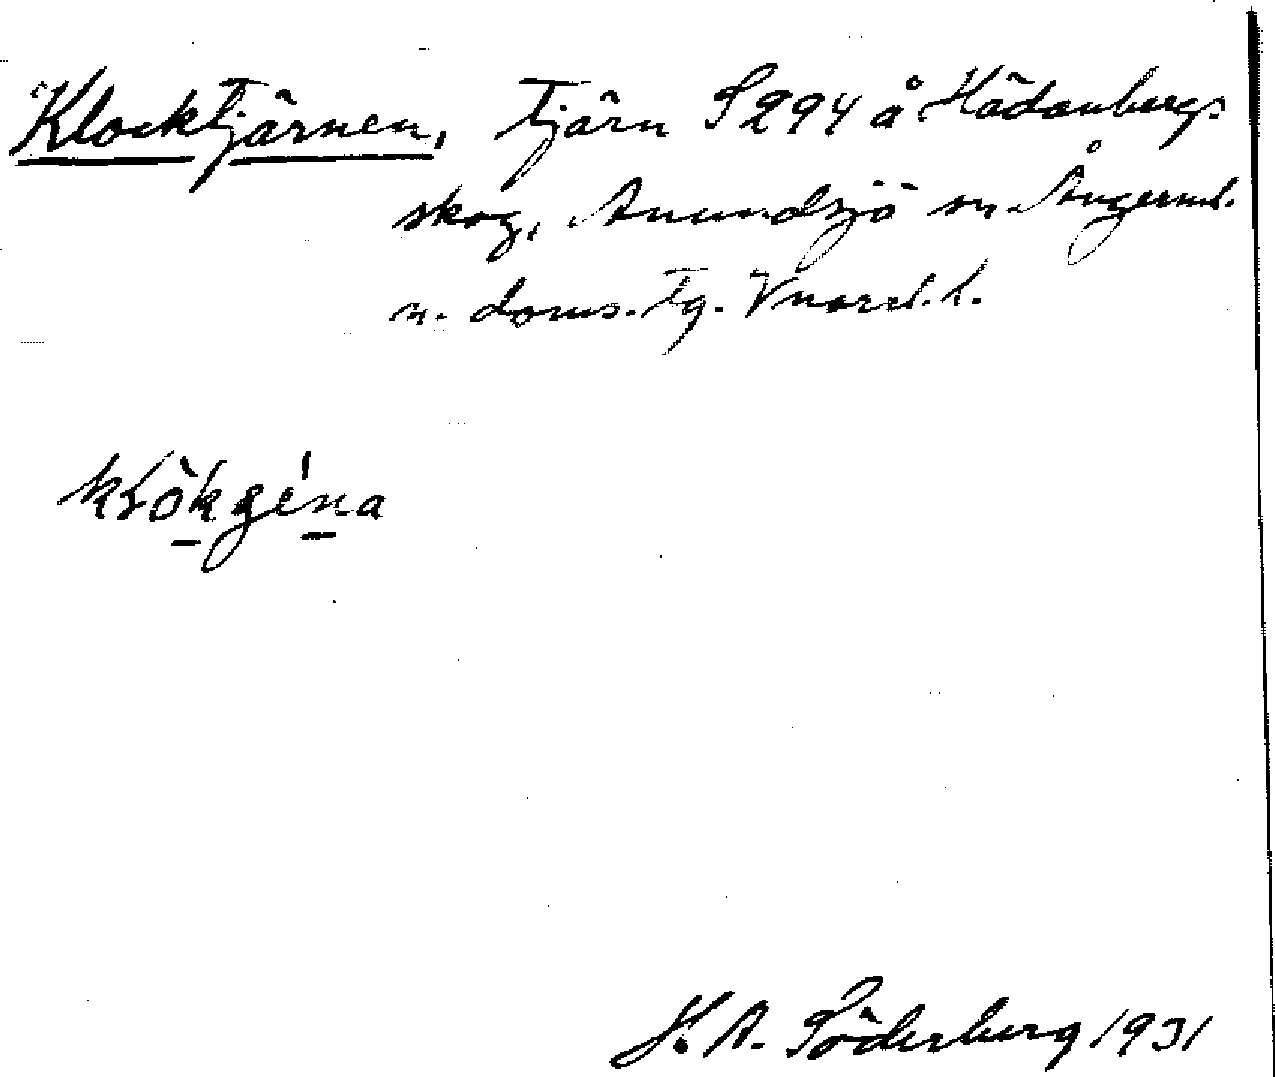 Klocktjärnen, tjärn S 294 å Hädanbergs
skog, Anundsjö sn Ångerml.
n. doms. tg. Vnorrl. l.
H. A. Söderberg 1931